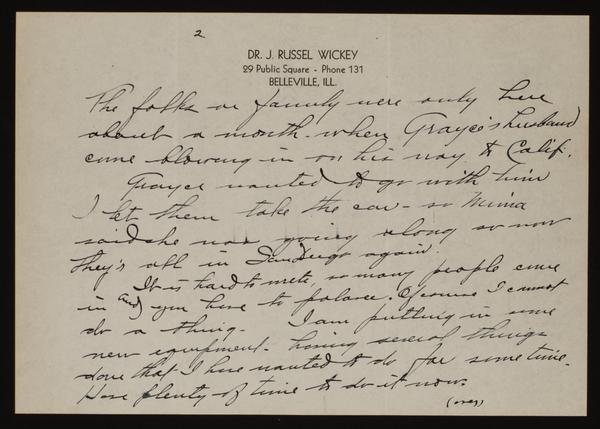 2
DR. J. RUSSEL WICKEY
29 Public Square - Phone 131
BELLEVILLE, ILL.
The folks or family were only here
about a month - when Grayce's husband
came blowing in on his way to Calif.
Grayce wanted to go with him
I let them take the car - so Mima
said she was going along so now
they's all in San Diego again.
It is hard to write, so many people come
in and you have to palavr. Of course I cannot
do a thing. I am putting in some
new equipment - having several things
done that I have wanted to do for some time.
Have plenty of time to do it now.
(over)